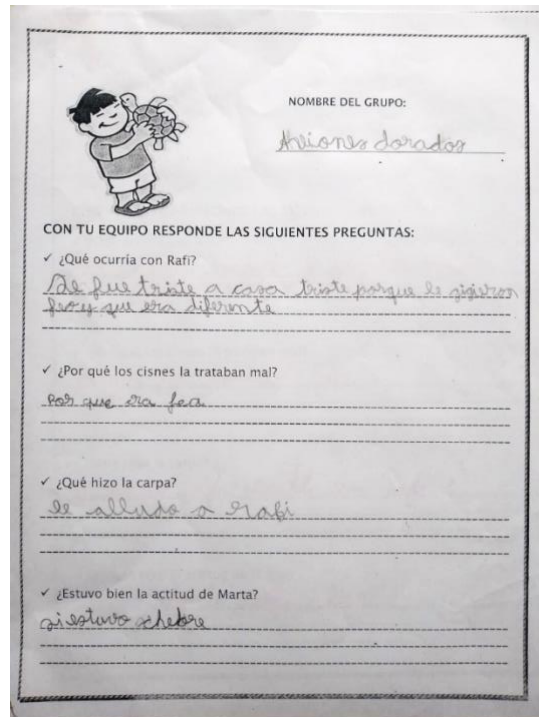 NOMBRE DEL GRUPO:
Aviones dorados
CON TU EQUIPO RESPONDE LAS SIGUIENTES PREGUNTAS:
✓ ¿Qué ocurría con Rafi?
Se fue triste a casa triste porque le gigieron
feo y que era diferente
✓ ¿Por qué los cisnes la trataban mal?
Por que era fea
✓ ¿Qué hizo la carpa?
le alludo a rafi
✓ ¿Estuvo bien la actitud de Marta?
si estuvo chebre